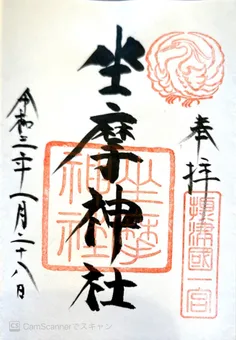 奉拝
摂津國一宮
坐摩神社
坐摩
神社
令和二年一月二十八日
CamScannerでスキャン